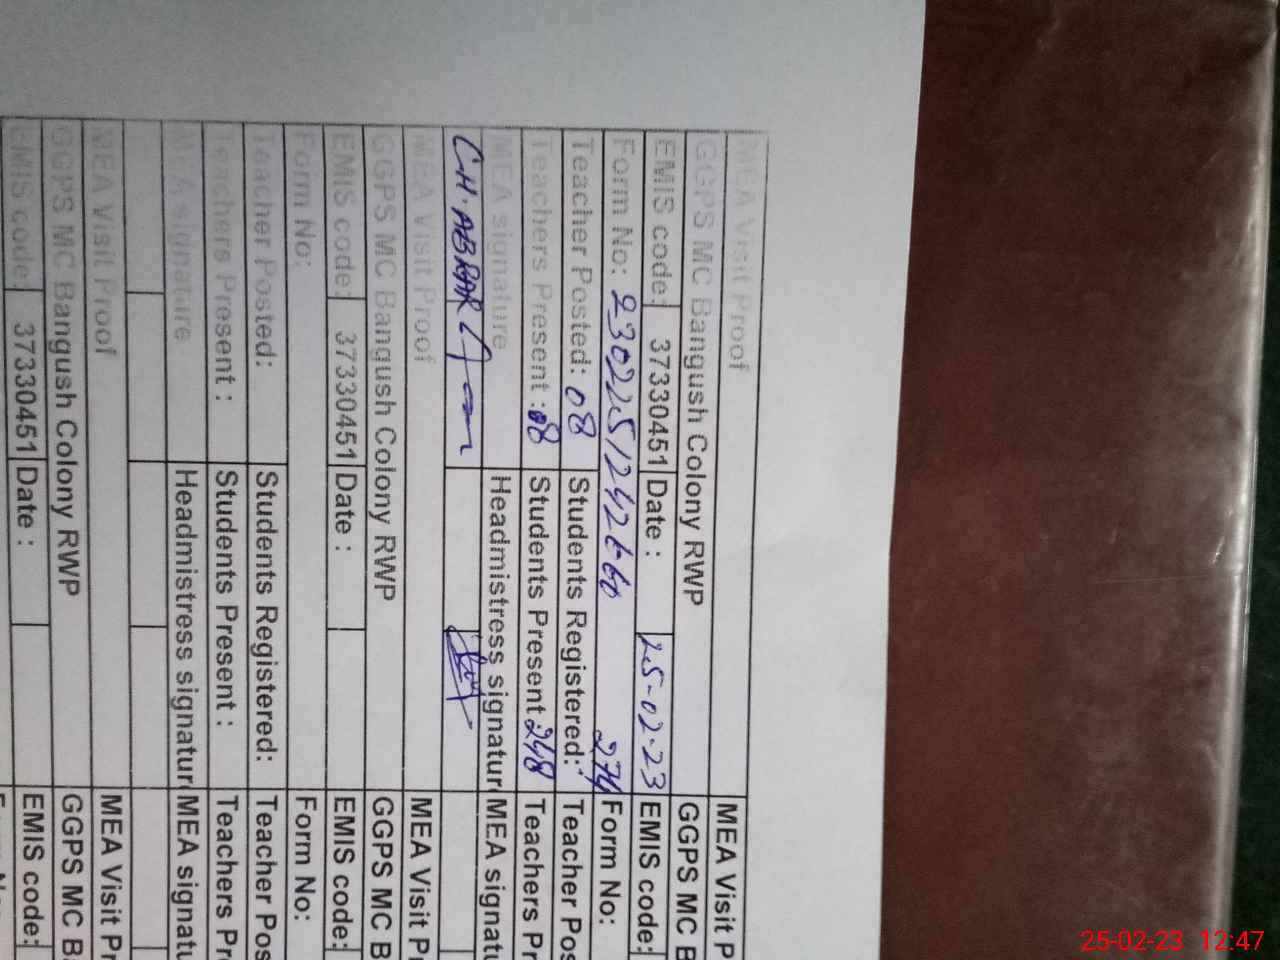 MEA Visit Proof
GGPS MC Bangush Colony RWP
EMIS code: 37330451 Date : 25-02-23
Form No:
Teacher Posted: 08 Students Registered: 274
Teachers Present : 08 Students Present : 248
MEA signature Headmistress signatur
CH. ABRAR
MEA Visit Proof
GGPS MC Bangush Colony RWP
EMIS code: 37330451 Date :
Form No:
Teacher Posted: Students Registered:
Teachers Present : Students Present :
MEA signature Headmistress signatur
MEA Visit Proof
GGPS MC Bangush Colony RWP
EMIS code: 37330451 Date :
MEA Visit P
GGPS MC B
EMIS code:
Form No:
Teacher Pos
Teachers Pr
MEA signatu
MEA Visit Pr
GGPS MC B
EMIS code:
Form No:
Teacher Pos
Teachers Pr
MEA signatu
MEA Visit Pr
GGPS MC B
EMIS code:
25-02-23 12:47